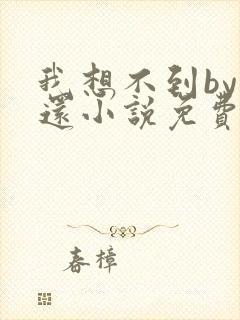 我想不到by
還小說免費
春樟